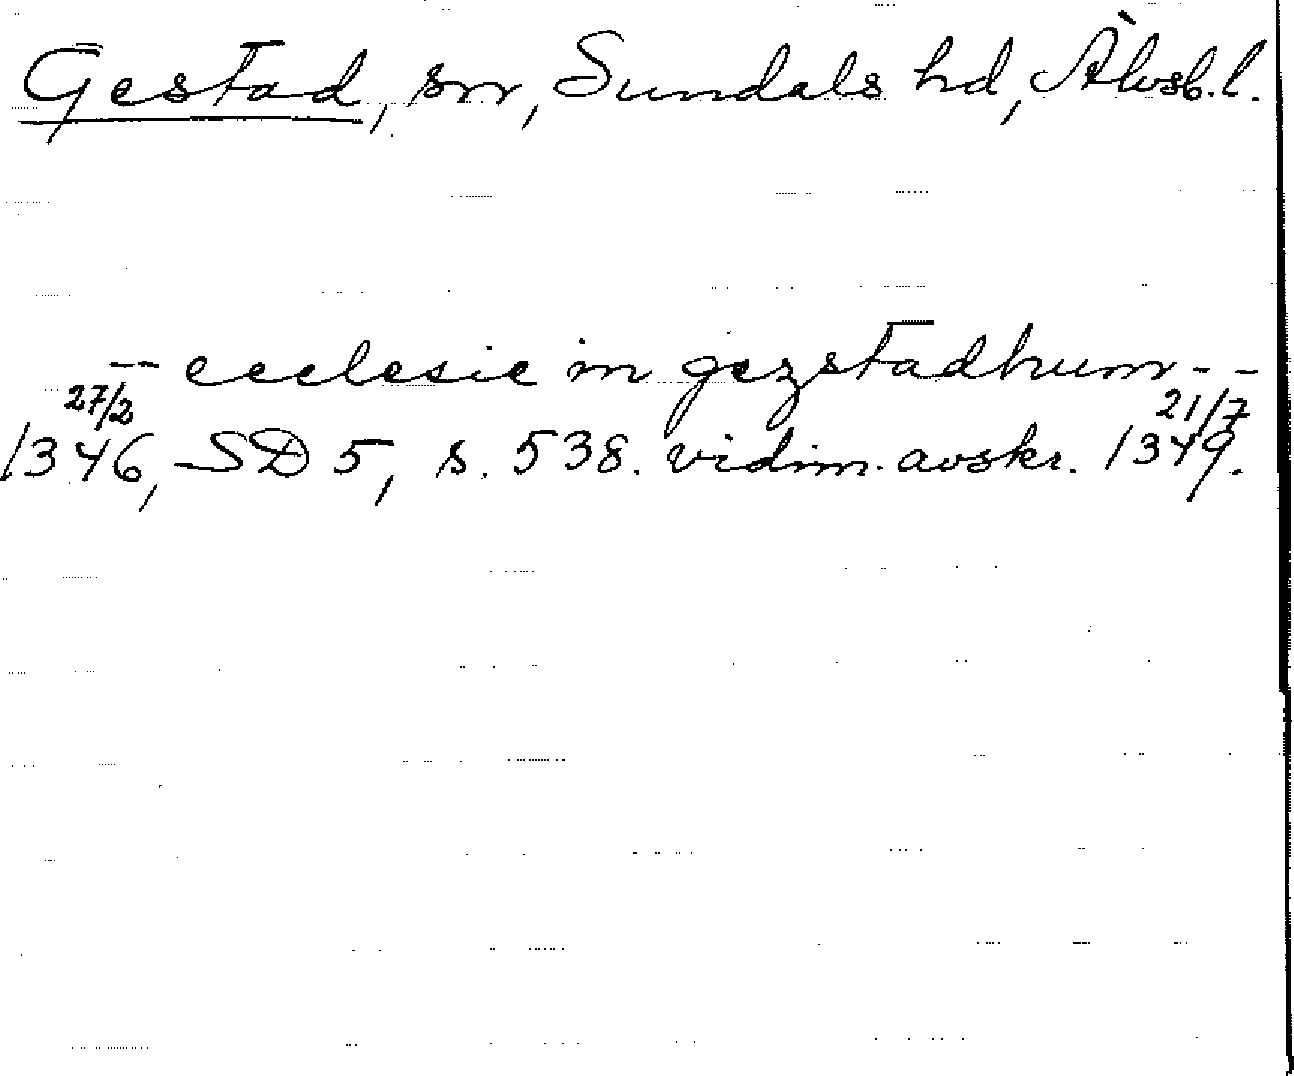 Gestad, sn, Sundals hd, Älvsb. l.
-- ecclesie in gezstadhum --
27/2 21/7
1346, SD 5, s. 538. vidim. avskr. 1349.